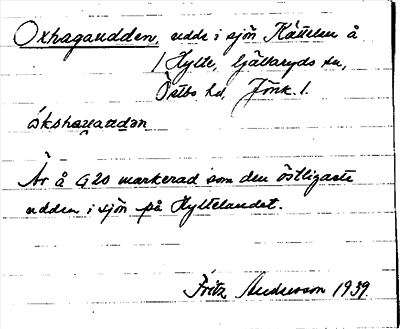 Oxhagaudden, udde i sjön Kätteln å
1 Hylte, Gällaryds sn,
Östbo hd, Jönk. l.
ókshagauđən
Är å G20 markerad som den östligaste
udden i sjön på Hyltelandet.
Fritz Andersson 1939